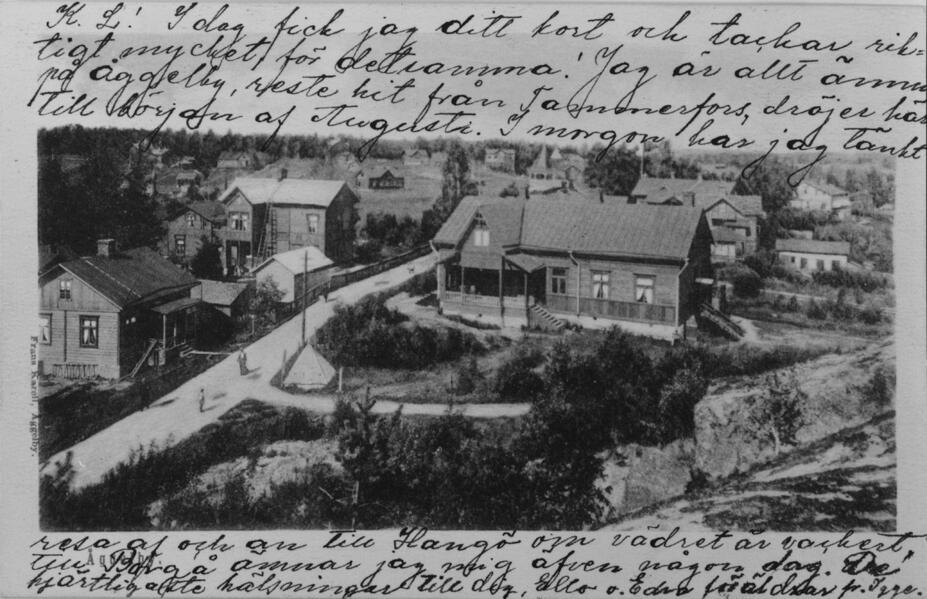 K. L.! I dag fick jag ditt kort och tackar rik-
tigt mycket, för detsamma! Jag är allt ännu
på Åggelby, reste hit från Tammerfors, dröjer här
till början af Augusti. I morgon har jag tänkt
Frans Karell Åggelby.
resa af och an till Hangö om vädret är vackert,
till Borgå ämnar jag mig äfven någon dag. De
hjärtligaste hälsningar till dig, Ello o. Edra föräldrar fr.